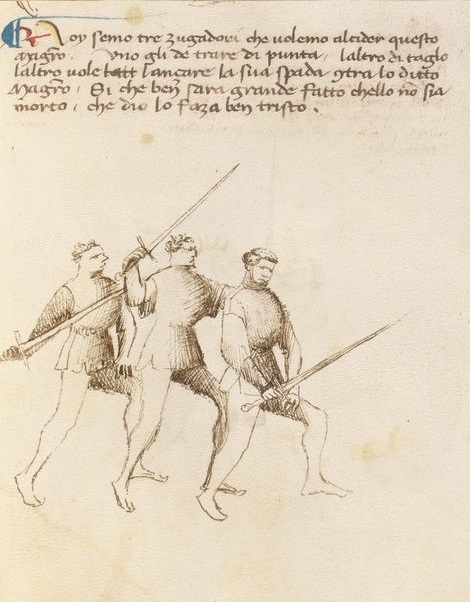 Noy semo tre zugadori che volemo alcider questo
Magistro. Uno gli de trare di punta, l'altro di taglo
laltro vole lançare la sua spada contra lo ditto
Magistro. Si che ben sara grande fatto chello non sia
morto, che dio lo faza ben tristo.